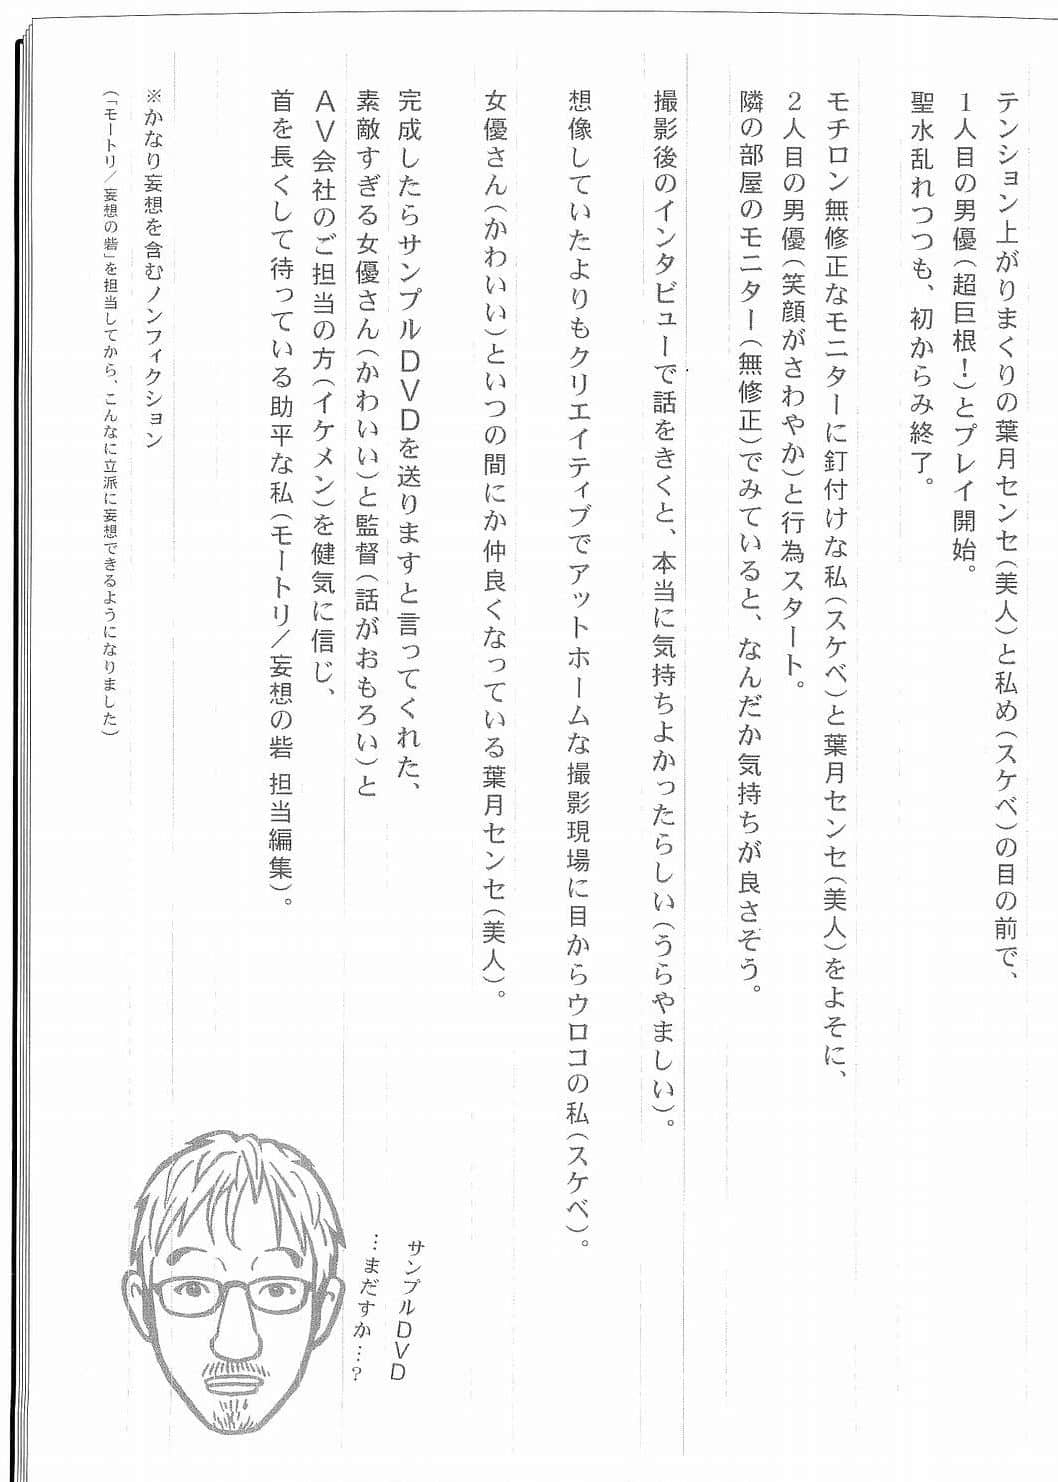 テンション上がりまくりの葉月センセ（美人）と私め（スケベ）の目の前で、
１人目の男優（超巨根！）とプレイ開始。
聖水乱れつつも、初からみ終了。
モチロン無修正なモニターに釘付けな私（スケベ）と葉月センセ（美人）をよそに、
２人目の男優（笑顔がさわやか）と行為スタート。
隣の部屋のモニター（無修正）でみていると、なんだか気持ちが良さそう。
撮影後のインタビューで話をきくと、本当に気持ちよかったらしい（うらやましい）。
想像していたよりもクリエイティブでアットホームな撮影現場に目からウロコの私（スケベ）。
女優さん（かわいい）といつの間にか仲良くなっている葉月センセ（美人）。
完成したらサンプルＤＶＤを送りますと言ってくれた、
素敵すぎる女優さん（かわいい）と監督（話がおもろい）と
ＡＶ会社のご担当の方（イケメン）を健気に信じ、
首を長くして待っている助平な私（モートリ／妄想の砦 担当編集）。
※かなり妄想を含むノンフィクション
（「モートリ／妄想の砦」を担当してから、こんなに立派に妄想できるようになりました）
サンプルＤＶＤ
…まだすか…？